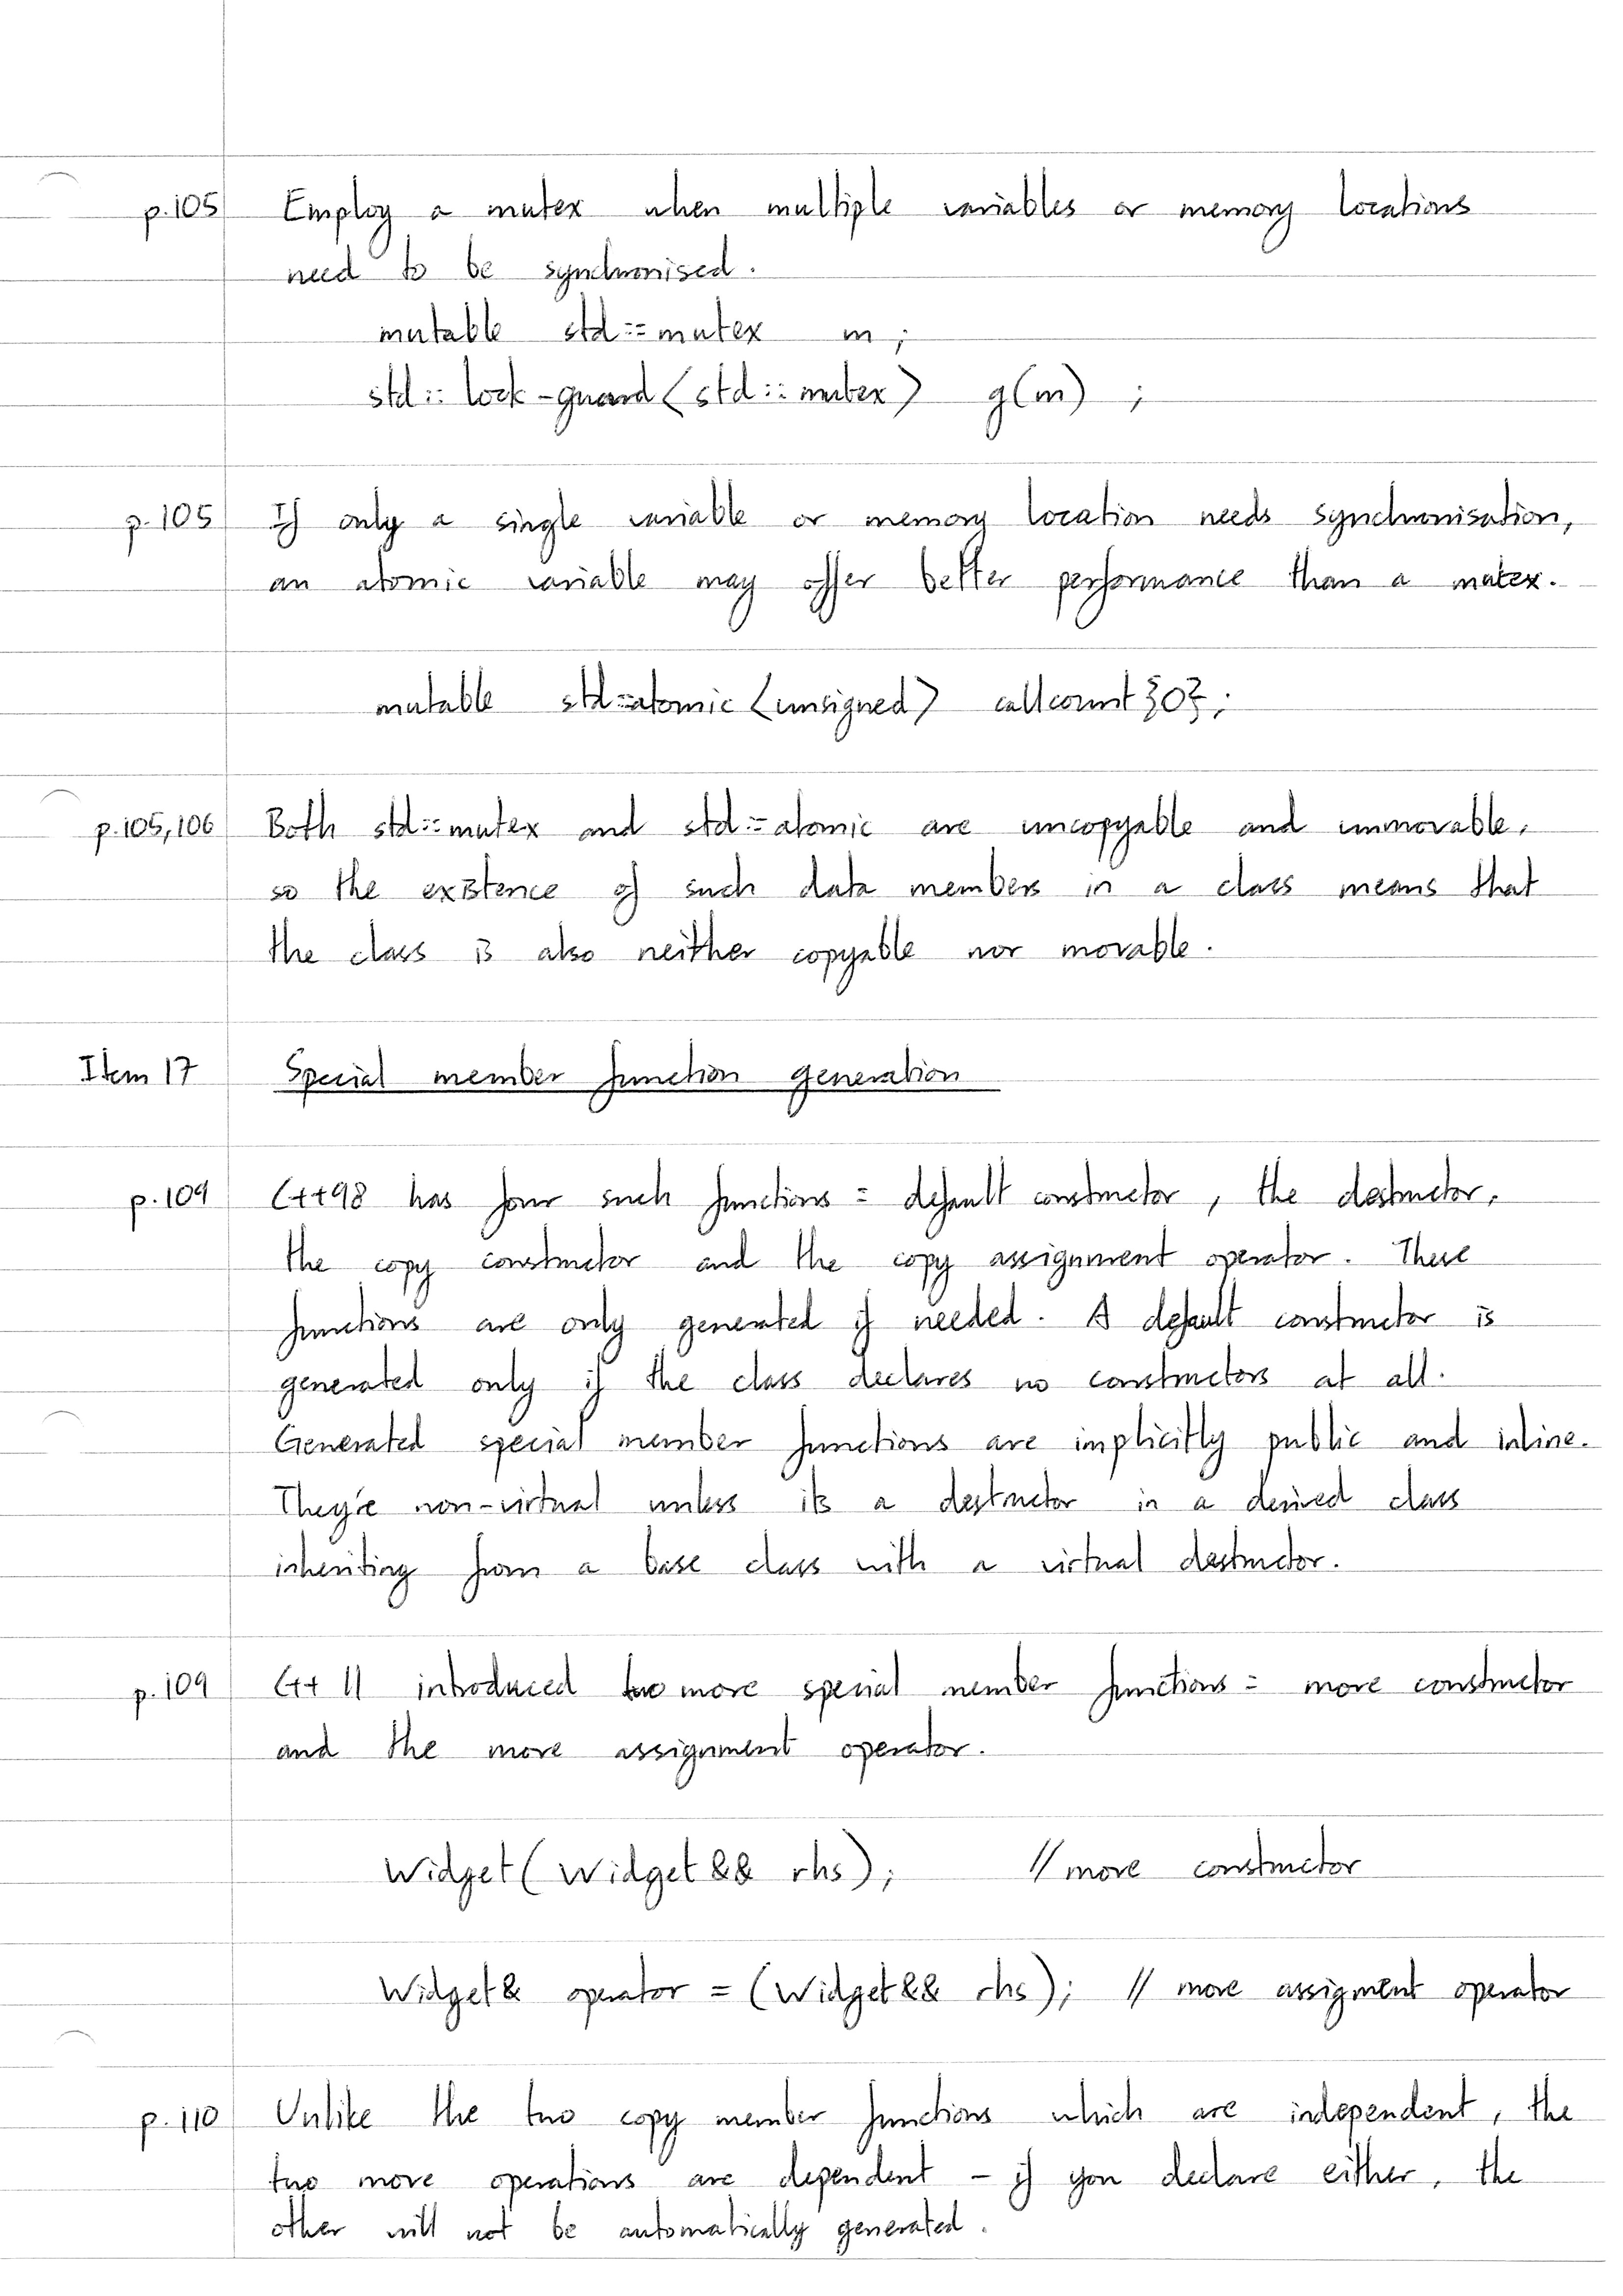 p.105 Employ a mutex when multiple variables or memory locations
need to be synchronised.
mutable std::mutex m;
std::lock-guard<std::mutex> g(m);
p.105 If only a single variable or memory location needs synchronisation,
an atomic variable may offer better performance than a mutex.
mutable std::atomic<unsigned> callcount{0};
p.105,106 Both std::mutex and std::atomic are uncopyable and immovable,
so the existence of such data members in a class means that
the class is also neither copyable nor movable.
Item 17 Special member function generation
p.109 C++98 has four such functions: default constructor, the destructor,
the copy constructor and the copy assignment operator. These
functions are only generated if needed. A default constructor is
generated only if the class declares no constructors at all.
Generated special member functions are implicitly public and inline.
They're non-virtual unless its a destructor in a derived class
inheriting from a base class with a virtual destructor.
p.109 C++11 introduced two more special member functions: move constructor
and the move assignment operator.
Widget(Widget&& rhs); //move constructor
Widget& operator=(Widget&& rhs); // move assigment operator
p.110 Unlike the two copy member functions which are independent, the
two move operations are dependent - if you declare either, the
other will not be automatically generated.